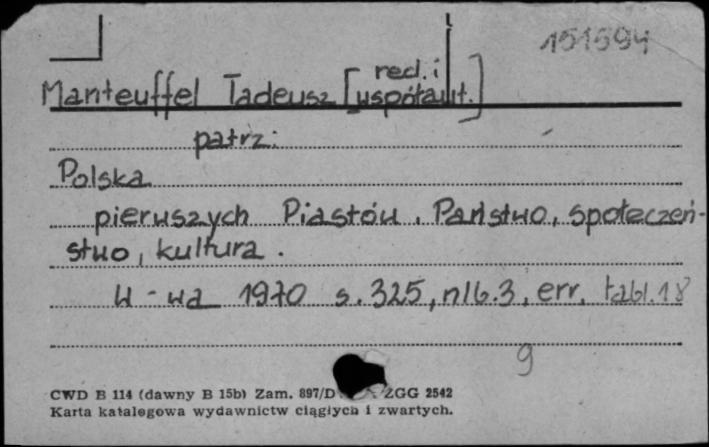 151594
Manteuffel Tadeusz [red. i współaut.]
patrz:
Polska
pierwszych Piastów. Państwo, społeczeń-
stwo, kultura.
W-wa 1970 s. 325, nlb. 3, err. tabl. 18
9
CWD B 114 (dawny B 15b) Zam. 897/D ZGG 2542
Karta katalogowa wydawnictw ciągłych i zwartych.